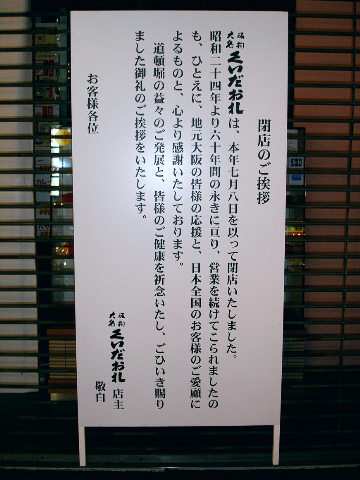 閉店のご挨拶
大阪名物くいだおれは、本年七月八日を以って閉店いたしました。
昭和二十四年より六十年間の永きに亘り、営業を続けてこられましたの
も、ひとえに、地元大阪の皆様の応援と、日本全国のお客様のご愛顧に
よるものと、心より感謝いたしております。
道頓堀の益々のご発展と、皆様のご健康を祈念いたし、ごひいき賜り
ました御礼のご挨拶をいたします。
大阪名物くいだおれ 店主
敬白
お客様各位